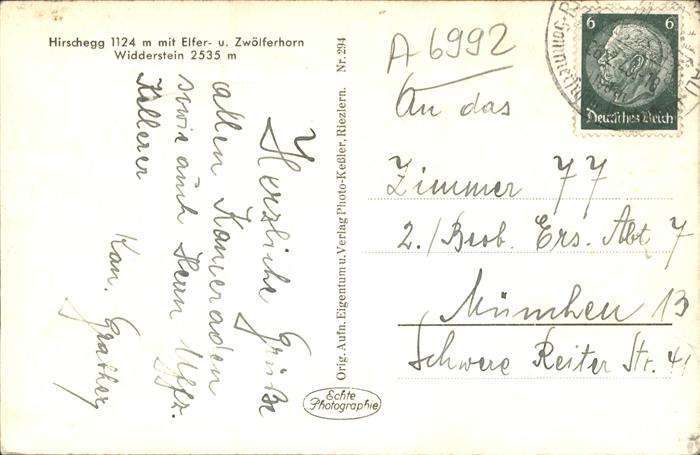 Hirschegg 1124 m mit Elfer- u. Zwölferhorn
Widderstein 2535 m
Herzliche Grüße
allen Kameraden
sowie auch Herrn Uffz.
Killerer
Kan.
Orig. Aufn. Eigentum u. Verlag Photo-Keßler, Riezlern. Nr. 294
Echte
Photographie
A 6992
6 6
Deutsches Reich
An das
Zimmer 77
2./Beob. Ers. Abt 7
München 13
Schwere Reiter Str. 41